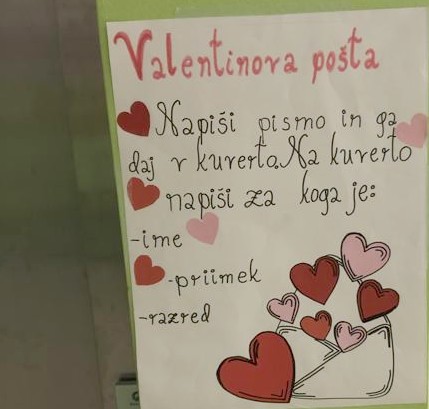 Valentinova pošta
Napiši pismo in ga
daj v kuverto. Na kuverto
napiši za koga je:
-ime
-priimek
-razred